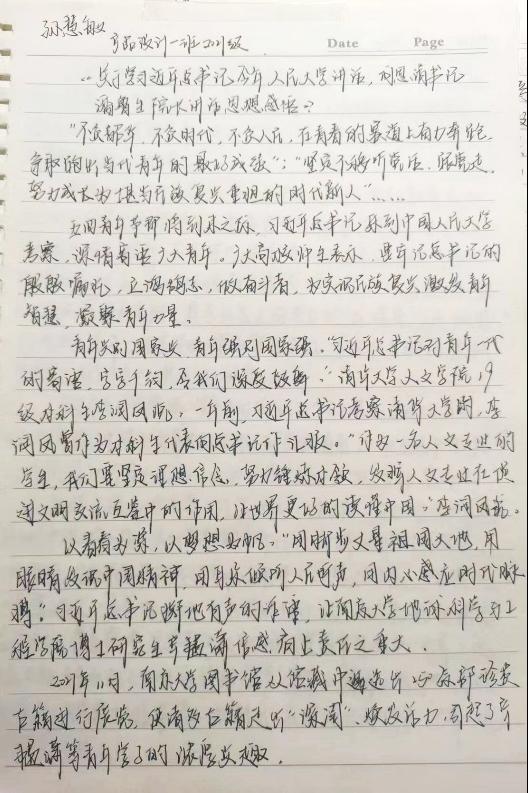 孙慧敏
产品设计一班2021级
Date Page
“关于学习近平总书记今年人民大学讲话,
院长讲话思想感悟”
“不负韶华,不负时代,不负人民,在青春的赛道上奋力奔跑,
争取跑出当代青年的最好成绩”;“坚定不移听党话、跟党走,
努力成长为堪当民族复兴重任的时代新人”……
五四青年节即将到来之际,习近平总书记来到中国人民大学
考察,深情寄语广大青年。广大高校师生表示,要牢记总书记的
殷殷嘱托,立鸿鹄志,做奋斗者,为实现民族复兴激发青年
智慧,凝聚青年力量。
青年兴则国家兴,青年强则国家强。“习近平总书记对青年一代
的寄语,字字千钧,令我们深受鼓舞。”清华大学人文学院19
级本科生李润凤说,一年前,习近平总书记考察清华大学时,李
润凤曾作为本科生代表向总书记作汇报。“作为一名人文专业的
学生,我们要坚定理想信念,努力锤炼本领,发挥人文专业在促
进文明交流互鉴中的作用,让世界更好的读懂中国。”李润凤说。
以青春为桨,以梦想为帆。“用脚步丈量祖国大地,用
眼睛发现中国精神,用耳朵倾听人民呼声,用内心感应时代脉
搏。”习近平总书记掷地有声的话语,让南京大学地球科学与工
程学院博士研究生倍感肩上责任之重大。
2021年11月,南京大学图书馆从馆藏中遴选出150余部珍贵
古籍进行展览,使诸多古籍走出“深闺”、焕发活力,引起了
等青年学子的浓厚兴趣。